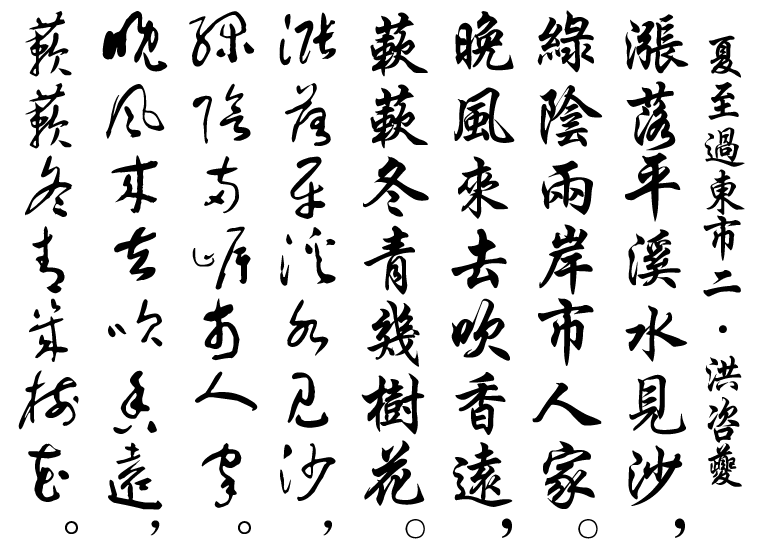 夏至過東市二·洪咨夔
漲落平溪水見沙，
綠陰兩岸市人家。
晚風來去吹香遠，
蔌蔌冬青幾樹花。
漲落平溪水見沙，
綠陰兩岸市人家。
晚風來去吹香遠，
蔌蔌冬青幾樹花。